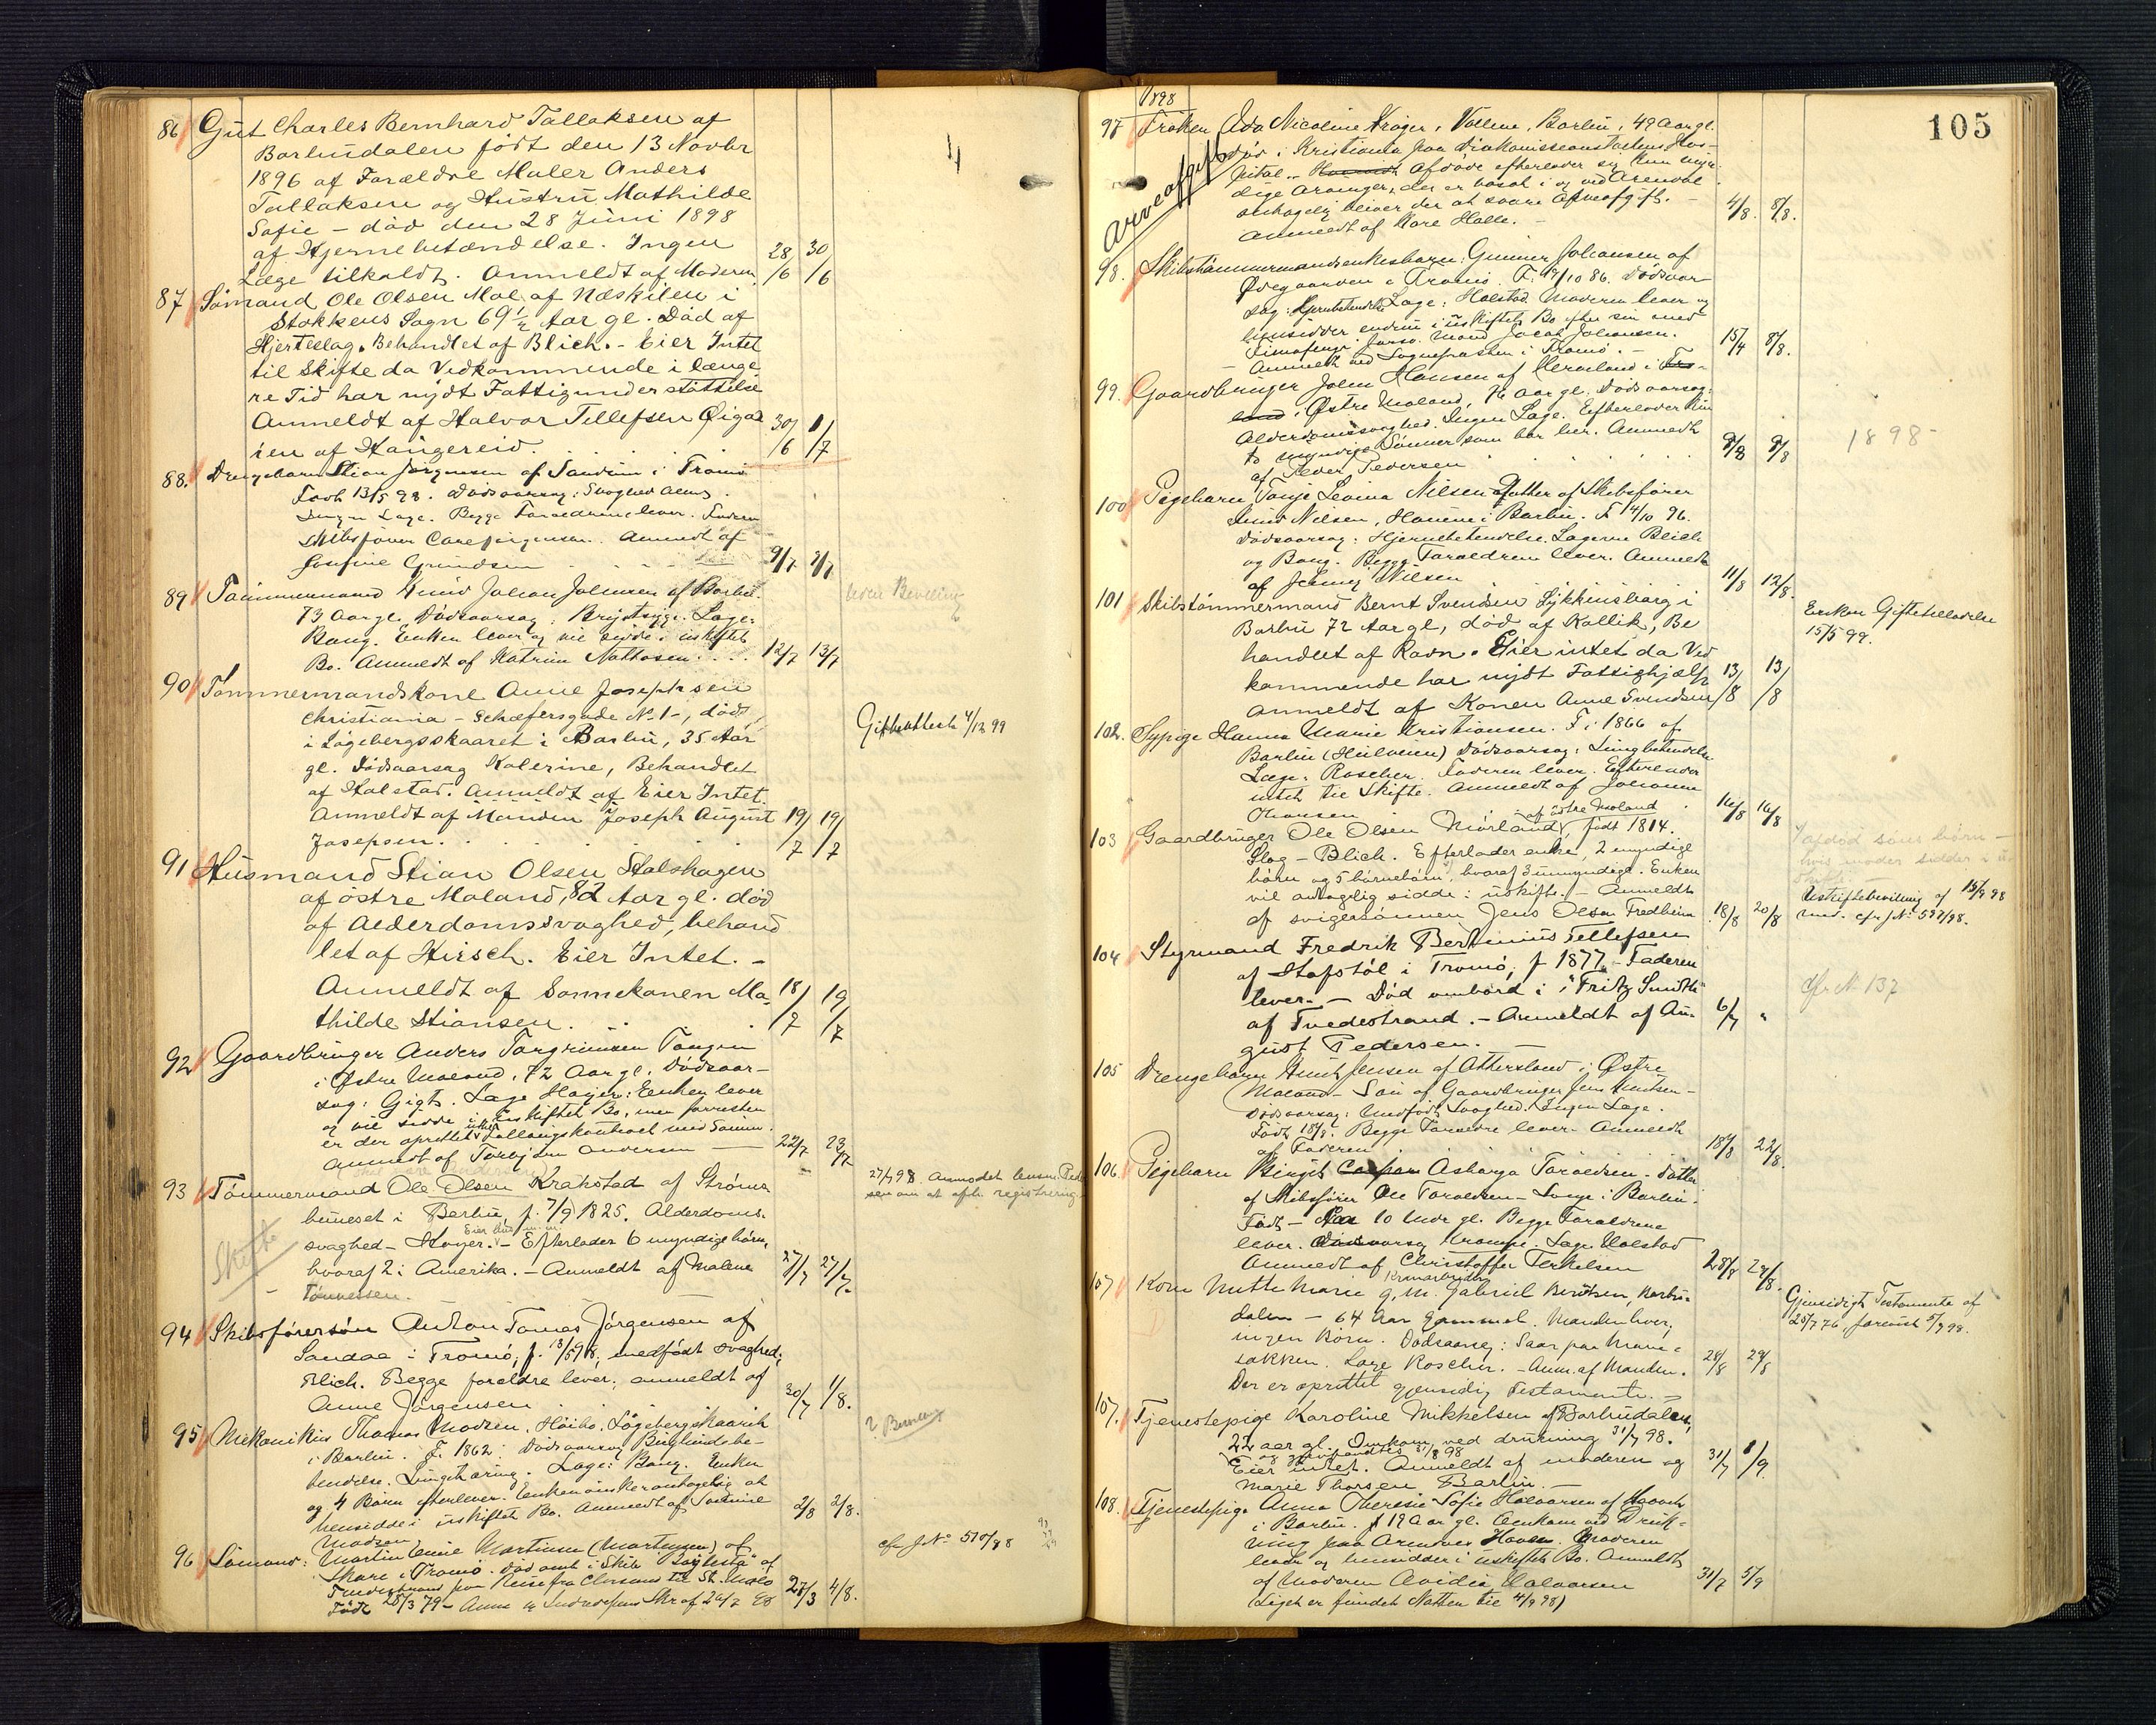 86 Gut Charles Bernhard Tallaksen af
Barbudalen født den 13 Novbr
1896 af Forældre Maler Anders
Tallaksen og Hustru Mathilde
Sofie – død den 28 Juni 1898
af Hjernebetændelse. Ingen
Læge tilkaldt. Anmeldt af Moderen 28/6 30/6
87 Sømand Ole Olsen Moe af Næskilen i
Stokkens Sogn 69½ Aar gl. Død af
Hjerteslag. Behandlet af Blich. – Eier Intet
til Skifte da Vedkommende i længe
re Tid har nydt Fattigunderstøttelse
Anmeldt af Halvor Tellefsen Øigar 30/6 1/7
ien af Haugereid.
88. Drengebarn Stian Jørgensen af Sandum i Tromø
Født 13/5 98. Dødsaarsag: Svaghed
Ingen Læge. Begge Forældrene lever. Faderen
Skibsfører Jørgensen. Anmeldt af
Josefine Gundersen 9/7 9/7
89 Tømmermand Knud Johan Johnsen af Barbu.
73 Aar gl. Dødsaarsag: Brystsyge. Læge:
Bang. Enken lever og vil sidde i uskiftet
Bo. Anmeldt af Katrine 12/7 13/7
90 Tømmermandskone Anne Josephsen
Christiania – Schæfersgade No 1 –, død
i Løgebergsskaaret i Barbu, 35 Aar
gl. Dødsaarsag Kolerine, Behandlet
af Holstad. Anmeldt af Eier Intet.
Anmeldt af Manden Joseph August 19/7 19/7
Josepsen.
Giftattest 4/12 99
91 Husmand Stian Olsen Stalshagen
af østre Moland, 82 Aar gl. død
af Alderdomssvaghed, behand
let af Hirsch. Eier Intet. –
Anmeldt af Sønnekonen Ma- 18/7 19/7
thilde Stiansen.
92 Gaardbruger Anders Torgrimsen Tangen
i Østre Moland, 72 Aar gl. Dødsaar-
sag: Gigt. Læge Høyer. Enken lever
og vil sidde i uskiftet Bo, men forresten
er der oprettet Føllaugskontract med Sønnen.
Anmeldt af Torbjørn Andersen — 22/7 23/7
93 Tømmermand Ole Olsen Krakstad af Strøms-
buneset i Barbu, f. 7/9 1825. Alderdoms-
svaghed – Høyer. – Efterlader 6 myndige børn,
hvoraf 2 i Amerika. – Anmeldt af Malene 27/7 27/7
Tønnessen.
Skifte
27/7 98. Anmodet lensm. Peder
sen om at afh. registrering.
94 Skibsførersøn Anton Tomas Jørgensen af
Sandaa i Tromø, f. 13/5 98, medfødt svaghed,
Blich. Begge forældre lever; anmeldt af
Anne Jørgensen 30/7 1/8.
95 Mekanikus Thomas Madsen, Høibo, Løgebergskaaret
i Barbu. F. 1862. Dødsaarsag Bughindebe-
tændelse. Læge: Bang. Enken
og 4 Børn efterlever. Enken ønsker antagelig at
hensidde i uskiftet Bo. Anmeldt af 2/8 2/8.
Madsen
? Bevilling
96 Sømand: Martin Emil Martinsen (Mortensen) af
Skare i Tromø. Død omb. i Skib af
Tvedestrand paa Reise fra til St. Malo
Født 28/3 79 – 27/3 4/8.
cfr J No 510/98
105
1898
97 Frøken Ida Nicoline Krøger, Vollene, Barbu, 49 Aar gl.
Død i Kristiania paa Diakonisseanstaltens Hos-
pital. – Afdøde efterlader sig kun myn-
dige Arvinger, der er bosat i og ved Arendal
antagelig bliver der at svare Arveafgift. –
Anmeldt af Kare Holte. – 4/8. 8/8.
Arveafgift
98. Skibstømmermandsenkesbarn: Gunner Johansen af
Øvegaarden i Tromø. F. 19/10 86. Dødsaar-
sag: Hjernebetændelse Læge: Holstad. Moderen lever og
hensidder endnu i uskiftet Bo efter sin med
forso. Mand Jacob Johansen.
– Anmeldt ved Sognepræsten i Tromø. – 15/4 8/8.
99. Gaardbruger John Hansen af i
i Østre Moland, 76 Aar gl. Dødsaarsag:
Alderdomssvaghed. Ingen Læge. Efterlader kun
to myndige Sønner som bor her. Anmeldt
af Pedersen 9/8 9/8
1898 –
100 Pigebarn Tonje Levina Nilsen Datter af Skibsfører
Nilsen, i Barbu. F 14/10 96.
Dødsaarsag: Hjernebetændelse. Lægerne Blich
og Bang. Begge Forældrene lever. Anmeldt
af Jenny Nilsen 11/8 12/8.
101 Skibstømmermand Bernt Svendsen Lykkensborg i
Barbu 72 Aar gl, død af Kollik, Be
handlet af Ravn. Eier intet da Ved
kommende har nydt Fattighjælp 13/8 13/8
Anmeldt af Konen Anne Svendsen
Enken Giftetilladelse
15/5 99.
102. Sypige Hanna Marie Kristiansen. F. i 1866 af
Barbu (Heilveien) Dødsaarsag: Lungebetændelse
Læge: Roscher. Faderen lever. Efterlader
intet til Skifte. Anmeldt af Johanne
Hansen 16/8 16/8
103 Gaardbruger Ole Olsen Mørland af østre Moland, født 1814.
Slag – Blich. Efterlader enke, 2 myndige
børn og 5 børnebørn, hvoraf 3 umyndige. Enken
vil antagelig sidde i uskifte. – Anmeldt
af svigersønnen Jens Olsen Fredheim 18/8 20/8
1 afdød søns børn –
hvis moder sidder i u-
skifte. –
Uskiftebevilling af 15/9 98
med. cfr J No 527/98.
104 Styrmand Fredrik Bertinius Tellefsen
af Stafstøl i Tromø, f 1877. Faderen
lever. – Død ombord i "Fritz Smith"
af Tvedestrand. – Anmeldt af Au- 6/7 "
gust Pedersen. —
Cfr No 137
105 Drengebarn Knut Jensen af Attersland i Østre
Moland – Søn af Gaardbruger Jens Knutsen –
Dødsaarsag: Medfødt Svaghed. Ingen Læge.
Født 18/8. Begge Forældre lever. Anmeldt
af Faderen. 18/8 22/8.
106. Pigebarn Birgit Asborga Taraldsen. Datter
af Skibsfører Ole Taraldsen – i Barbu.
Født – 10 Mdr gl. Begge Forældrene
lever. Dødsaarsag Krampe. Læge Holstad
Anmeldt af Christoffer Terkelsen 28/8 29/8.
107 Kone Mette Marie g. m. Gabriel Berntsen, Barbu-
dalen – 64 Aar gammel. Manden lever,
ingen Børn. Dødsaarsag: Saar paa Mave-
sækken. Læge Roscher. – Anm. af Manden. 28/8 29/8
Der er oprettet gjensidig Testamente. –
Gjensidigt Testamente af
25/7 76 forevist 5/9 98.
107. Tjenestepige Karoline Mikkelsen af Barbudalen,
22 aar gl. Omkom ved drukning 31/7 98.
Eier intet. Anmeldt af moderen og
Marie Thorsen Barbu. – 31/7 1/9.
108. Tjenestepige Anna Theresie Sofie Halvorsen af
i Barbu. f 19 Aar gl. Omkom ved Druk-
ning paa Arendals Havn. Moderen
lever og hensidder i uskiftet Bo. Anmeldt
af Moderen Halvorsen 31/7 5/9
(Liget er fundet Natten til 4/9 98)